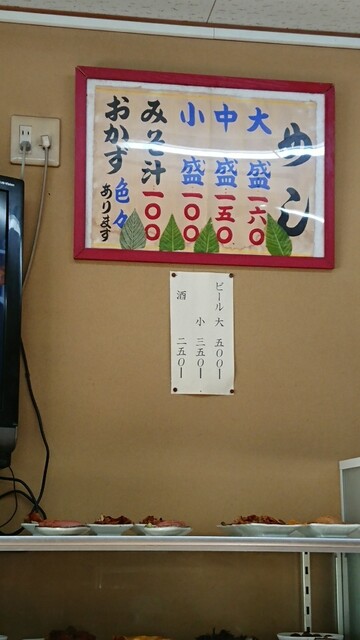 めし
大盛一六〇
中盛一五〇
小盛一〇〇
みそ汁一〇〇
おかず色々あります
ビール 大 五〇〇ー
小 三五〇ー
酒 二五〇ー